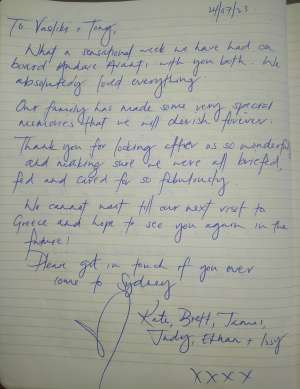 21/07/23
To Vasiliki + Tony,
What a sensational week we have had on
board Andare Avanti with you both. We
absolutely loved everything.
Our family has made some very special
memories that we will cherish forever.
Thank you for looking after us so wonderful
and making sure we were all briefed,
fed and cared for so fabulously.
We cannot wait till our next visit to
Greece and hope to see you again in the
future!
Please get in touch if you ever
come to Sydney
Kate, Brett,
Judy, Ethan +
X X X X